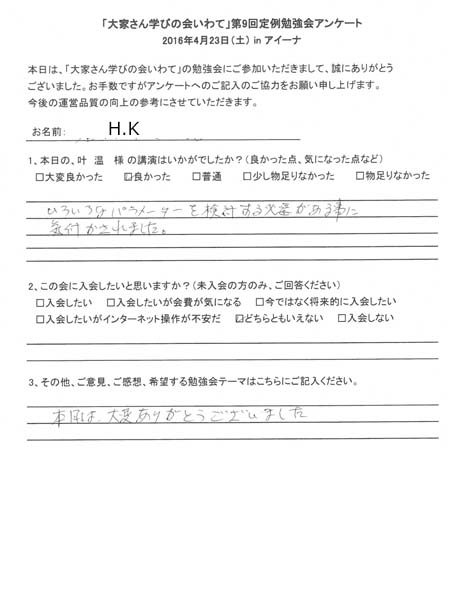 「大家さん学びの会いわて」第9回定例勉強会アンケート
2016年4月23日(土) in アイーナ
本日は、「大家さん学びの会いわて」の勉強会にご参加いただきまして、誠にありがとう
ございました。お手数ですがアンケートへのご記入のご協力をお願い申し上げます。
今後の運営品質の向上の参考にさせていただきます。
お名前: H.K
1、本日の、叶 温 様 の講演はいかがでしたか?(良かった点、気になった点など)
□大変良かった ☑良かった □普通 □少し物足りなかった □物足りなかった
いろいろなパラメーターを検討する必要がある事に
気付かされました。
2、この会に入会したいと思いますか?(未入会の方のみ、ご回答ください)
□入会したい □入会したいが会費が気になる □今ではなく将来的に入会したい
□入会したいがインターネット操作が不安だ ☑どちらともいえない □入会しない
3、その他、ご意見、ご感想、希望する勉強会テーマはこちらにご記入ください。
本日は、大変ありがとうございました